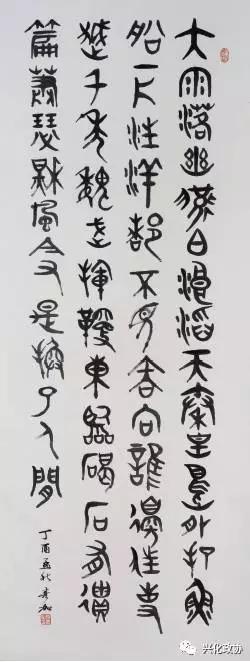 大雨落幽燕白浪滔天秦皇島外打魚
船一片汪洋都不見知向誰邊往事
越千年魏武揮鞭東臨碣石有遺
篇蕭瑟秋風今又是換了人間
丁酉孟秋
兴化政协